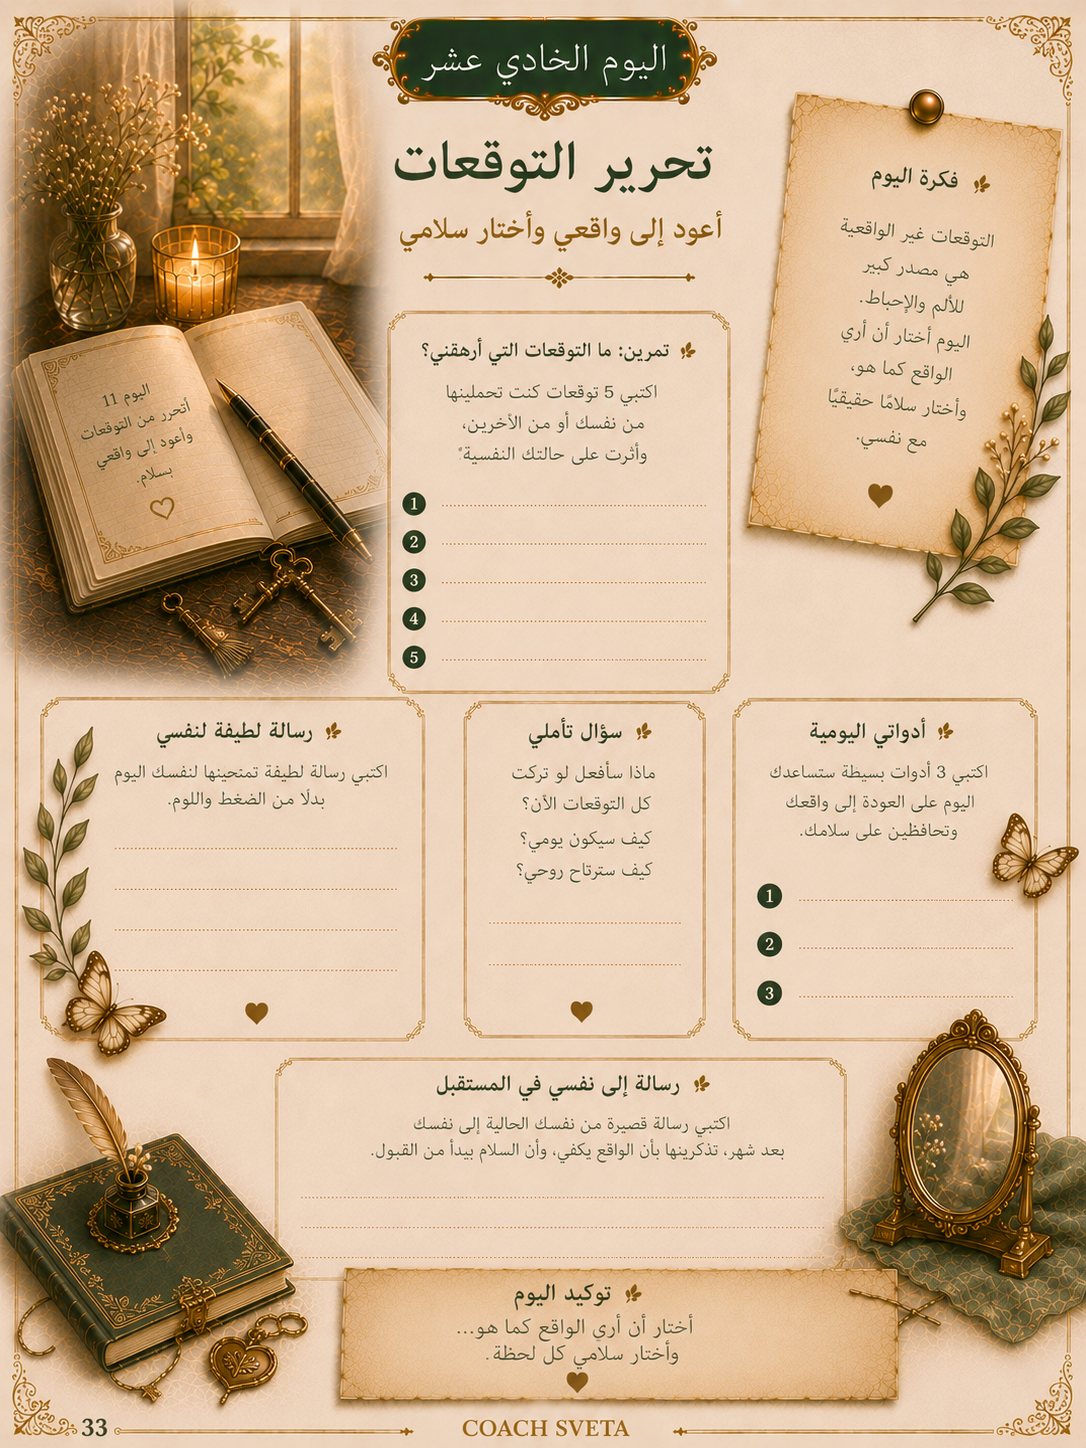 اليوم الخادي عشر
تحرير التوقعات
أعود إلى واقعي وأختار سلامي
فكرة اليوم
التوقعات غير الواقعية
هي مصدر كبير
للألم والإحباط.
اليوم أختار أن أري
الواقع كما هو،
وأختار سلامًا حقيقيًا
مع نفسي.
اليوم 11
أتحرر من التوقعات
وأعود إلى واقعي
بسلام.
تمرين: ما التوقعات التي أرهقتني؟
اكتبي 5 توقعات كنت تحملينها
من نفسك أو من الأخرين،
وأثرت على حالتك النفسية:
1
2
3
4
5
أدواتي اليومية
اكتبي 3 أدوات بسيطة ستساعدك
اليوم على العودة إلى واقعك
وتحافظين على سلامك.
1
2
3
سؤال تأملي
ماذا سأفعل لو تركت
كل التوقعات الآن؟
كيف سيكون يومي؟
كيف سترتاح روحي؟
رسالة لطيفة لنفسي
اكتبي رسالة لطيفة تمنحينها لنفسك اليوم
بدلًا من الضغط واللوم.
رسالة إلى نفسي في المستقبل
اكتبي رسالة قصيرة من نفسك الحالية إلى نفسك
بعد شهر، تذكرينها بأن الواقع يكفي، وأن السلام يبدأ من القبول.
توكيد اليوم
أختار أن أري الواقع كما هو...
وأختار سلامي كل لحظة.
33
COACH SVETA